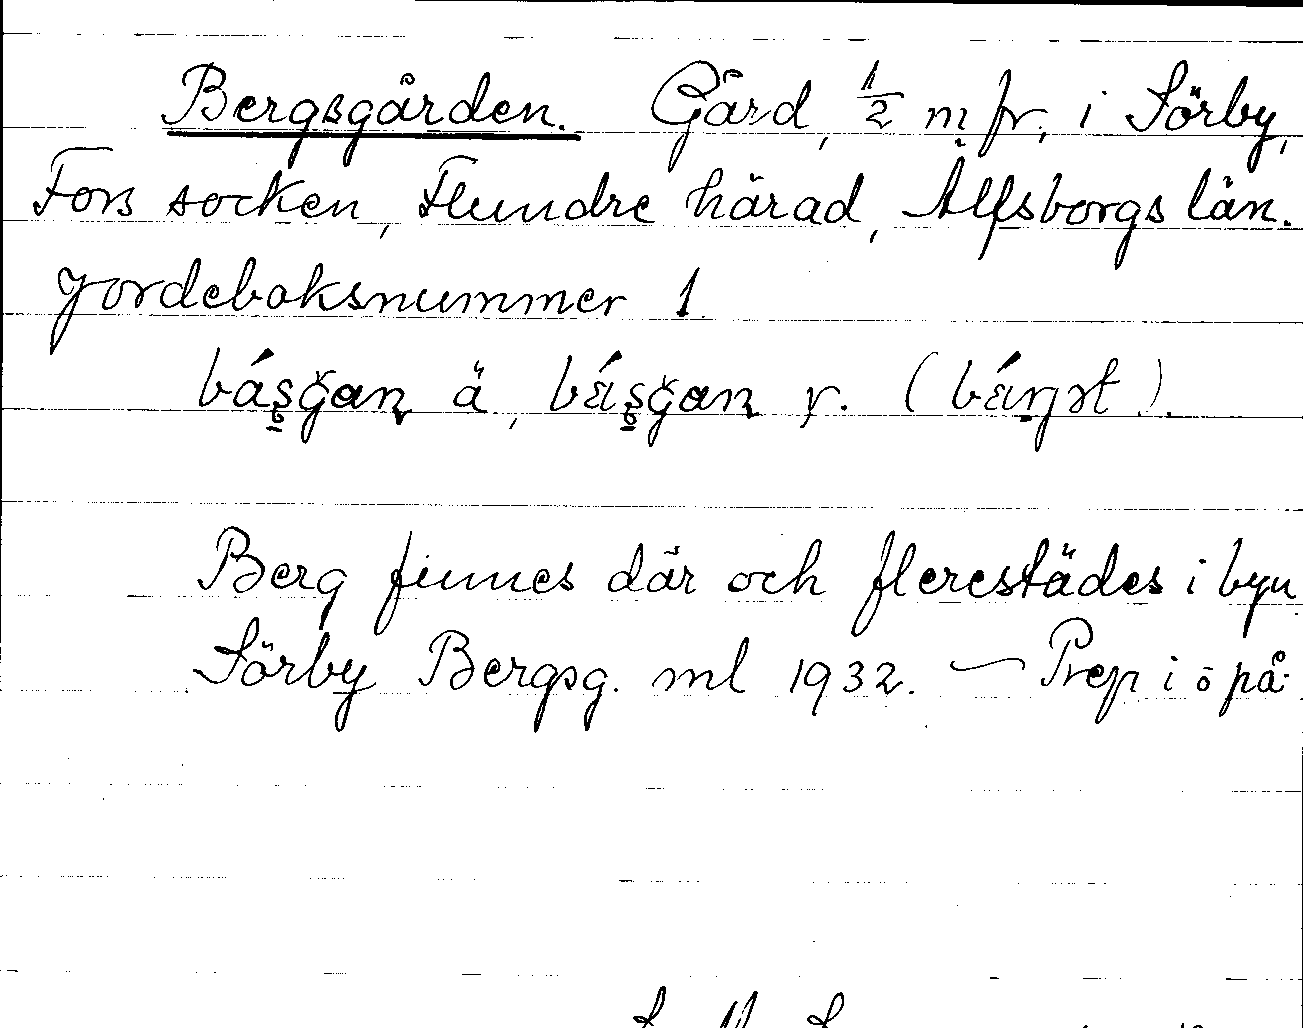 Bergsgården. Gård, 1/2 m fr, i Sörby,
Fors socken, Flundre härad, Älfsborgs län.
Jordeboksnummer 1
ä, y.
Berg finnes där och flerestädes i byn
Sörby Bergsg. ml 1932. — Prep i o på.